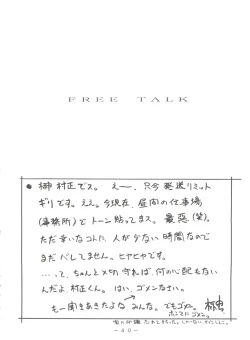 FREE TALK
● 柳 村正でス。えー、只今 発送リミット
ギリです。ええ。今現在、昼間の仕事場
(事務所)でトーン貼ってまス。最悪(笑)。
ただ幸いなコトに、人が少ない時間なので
まだバレてません。ヒヤヒヤです。
……って、ちゃんと〆切守れば、何の心配もない
んだよ、村正くん。はい、ゴメンなさい。
もー聞きあきたよな、みんな。でもゴメン。
ホンマにゴメン。
－40－